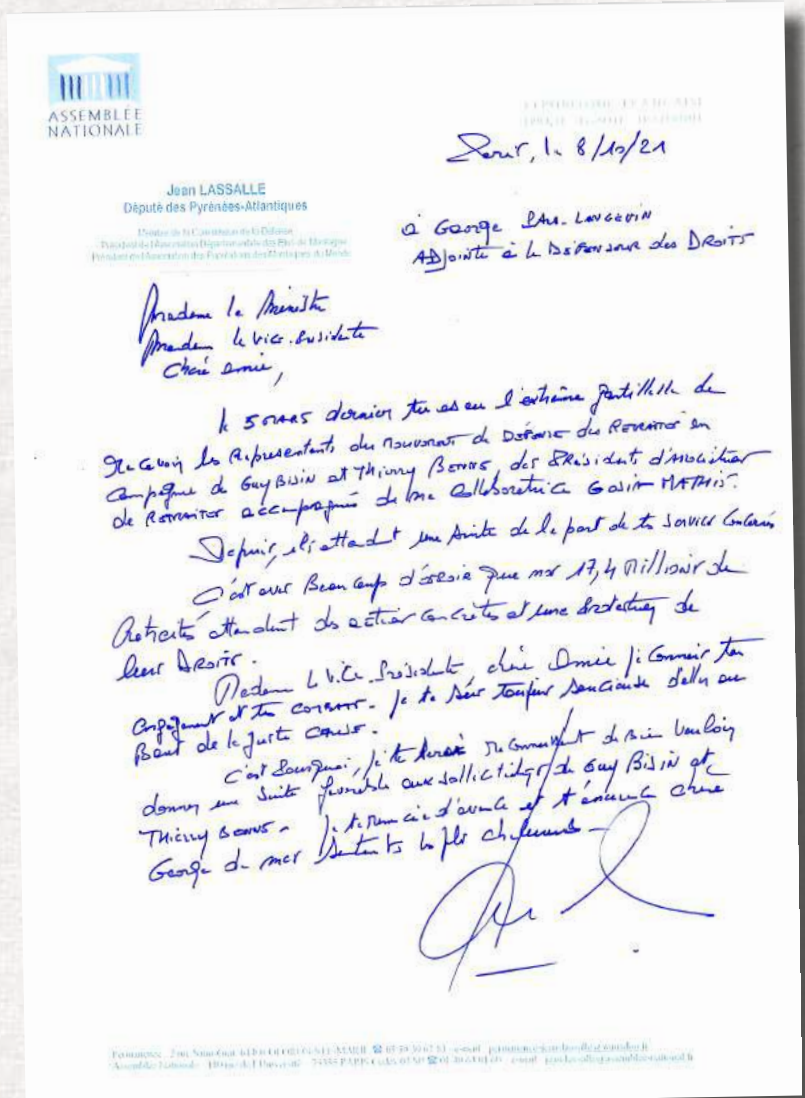 ASSEMBLÉE
NATIONALE
RÉPUBLIQUE FRANÇAISE
LIBERTÉ - ÉGALITÉ - FRATERNITÉ
Paris, le 8/10/21
Jean LASSALLE
Député des Pyrénées-Atlantiques
Membre de la Commission de la Défense
Président de l'Association Départementale des Élus de Montagne
Président de l'Association des Populations des Montagnes du Monde
à George PAU-LANGEVIN
ADJointe à la DÉFENSEUR des DROITS
Madame la Ministre
Madame la Vice-Présidente
Chère Amie,
le 5 MARS dernier tu as eu l'extrême gentillesse de
Recevoir les Représentants du Mouvement de DÉFENSE des RETRAITÉS en
Compagnie de Guy BISIN et Thierry BENNE, des PRÉSIDENTS d'Association
de RETRAITÉS accompagnés de ma Collaboratrice MATHIS.
Depuis, ils attendent une suite de la part de tes services concernés
C'est avec Beaucoup d'espoir que nos 17,4 Millions de
Retraités attendent des actions concrètes et une de
leurs DROITS.
Madame la Vice-Présidente, chère Amie je connais ton
engagement et tes COMBATS. Je te sais toujours soucieuse d'aller au
Bout de la juste CAUSE.
C'est Pourquoi, je te serais reconnaissant de Bien Vouloir
donner une suite favorable aux sollicitations de Guy BISIN et
Thierry BENNE. Je te remercie d'avance et t'assure chère
George de mes sentiments les plus chaleureux
Permanence : 2 rue
Assemblée Nationale 126 rue de l'Université 75355 PARIS Cedex 07 SP